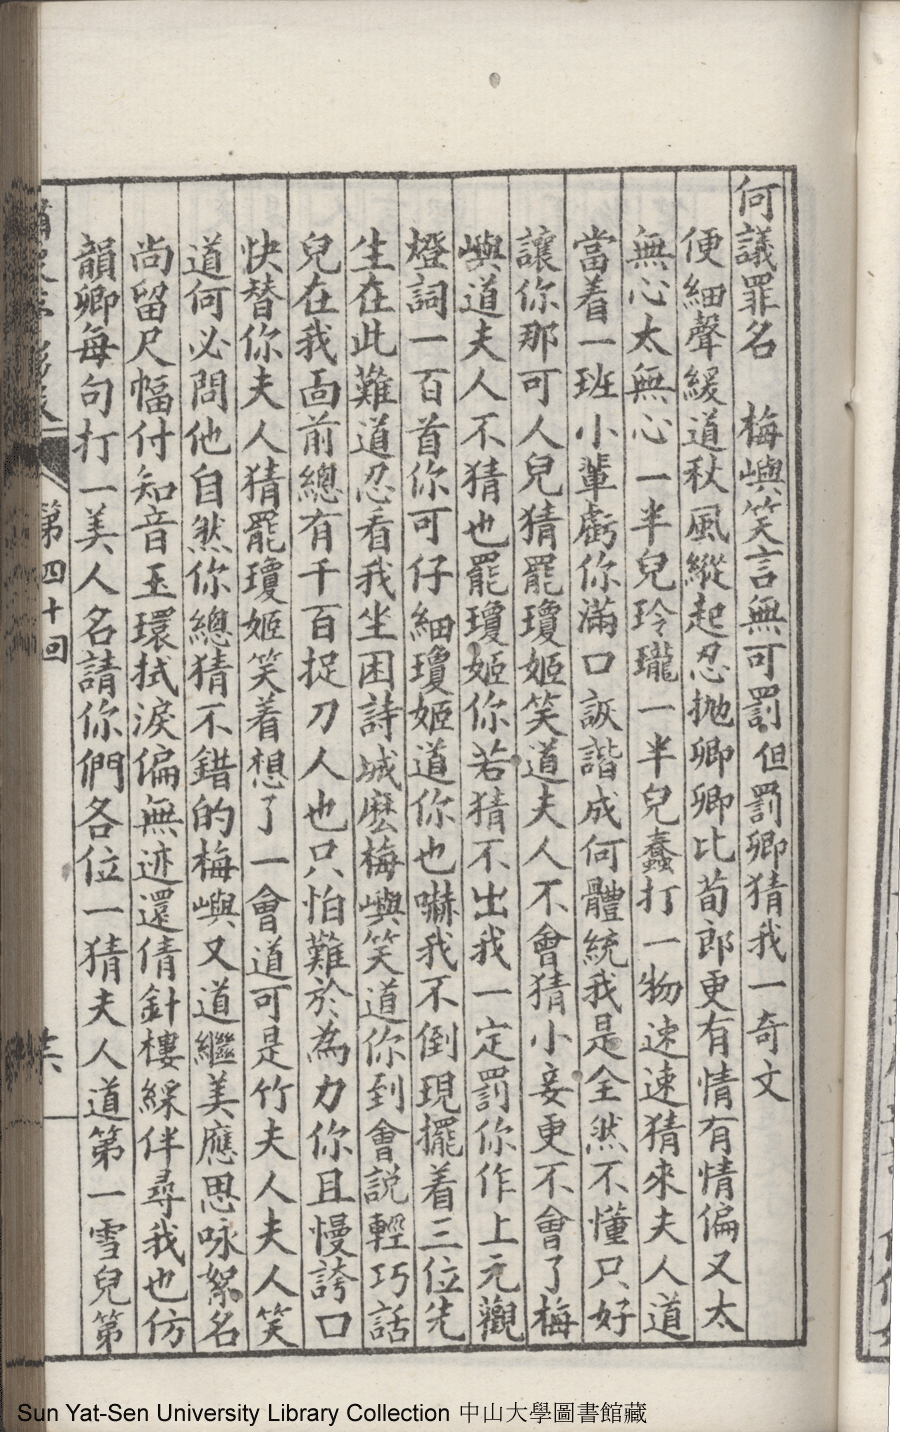 何議罪名　梅嶼笑言無可罰但罰卿猜我一奇文
便細聲緩道秋風縱起忍拋卿卿比荀郎更有情有情偏又太
無心太無心一半兒玲瓏一半兒蠢打一物速速猜來夫人道
當着一班小輩虧你滿口詼諧成何體統我是全然不懂只好
讓你那可人兒猜罷瓊姬笑道夫人不會猜小妾更不會了梅
嶼道夫人不猜也罷瓊姬你若猜不出我一定罰你作上元觀
燈詞一百首你可仔細瓊姬道你也嚇我不倒現擺着三位先
生在此難道忍看我坐困詩城麼梅嶼笑道你到會説輕巧話
兒在我面前總有千百捉刀人也只怕難於為力你且慢誇口
快替你夫人猜罷瓊姬笑着想了一會道可是竹夫人夫人笑
道何必問他自然你總猜不錯的梅嶼又道繼美應思咏絮名
尚留尺幅付知音玉環拭淚偏無迹還倩針樓綵伴尋我也仿
韻卿每句打一美人名請你們各位一猜夫人道第一雪兒第
第四十回
Sun Yat-Sen University Library Collection 中山大學圖書館藏